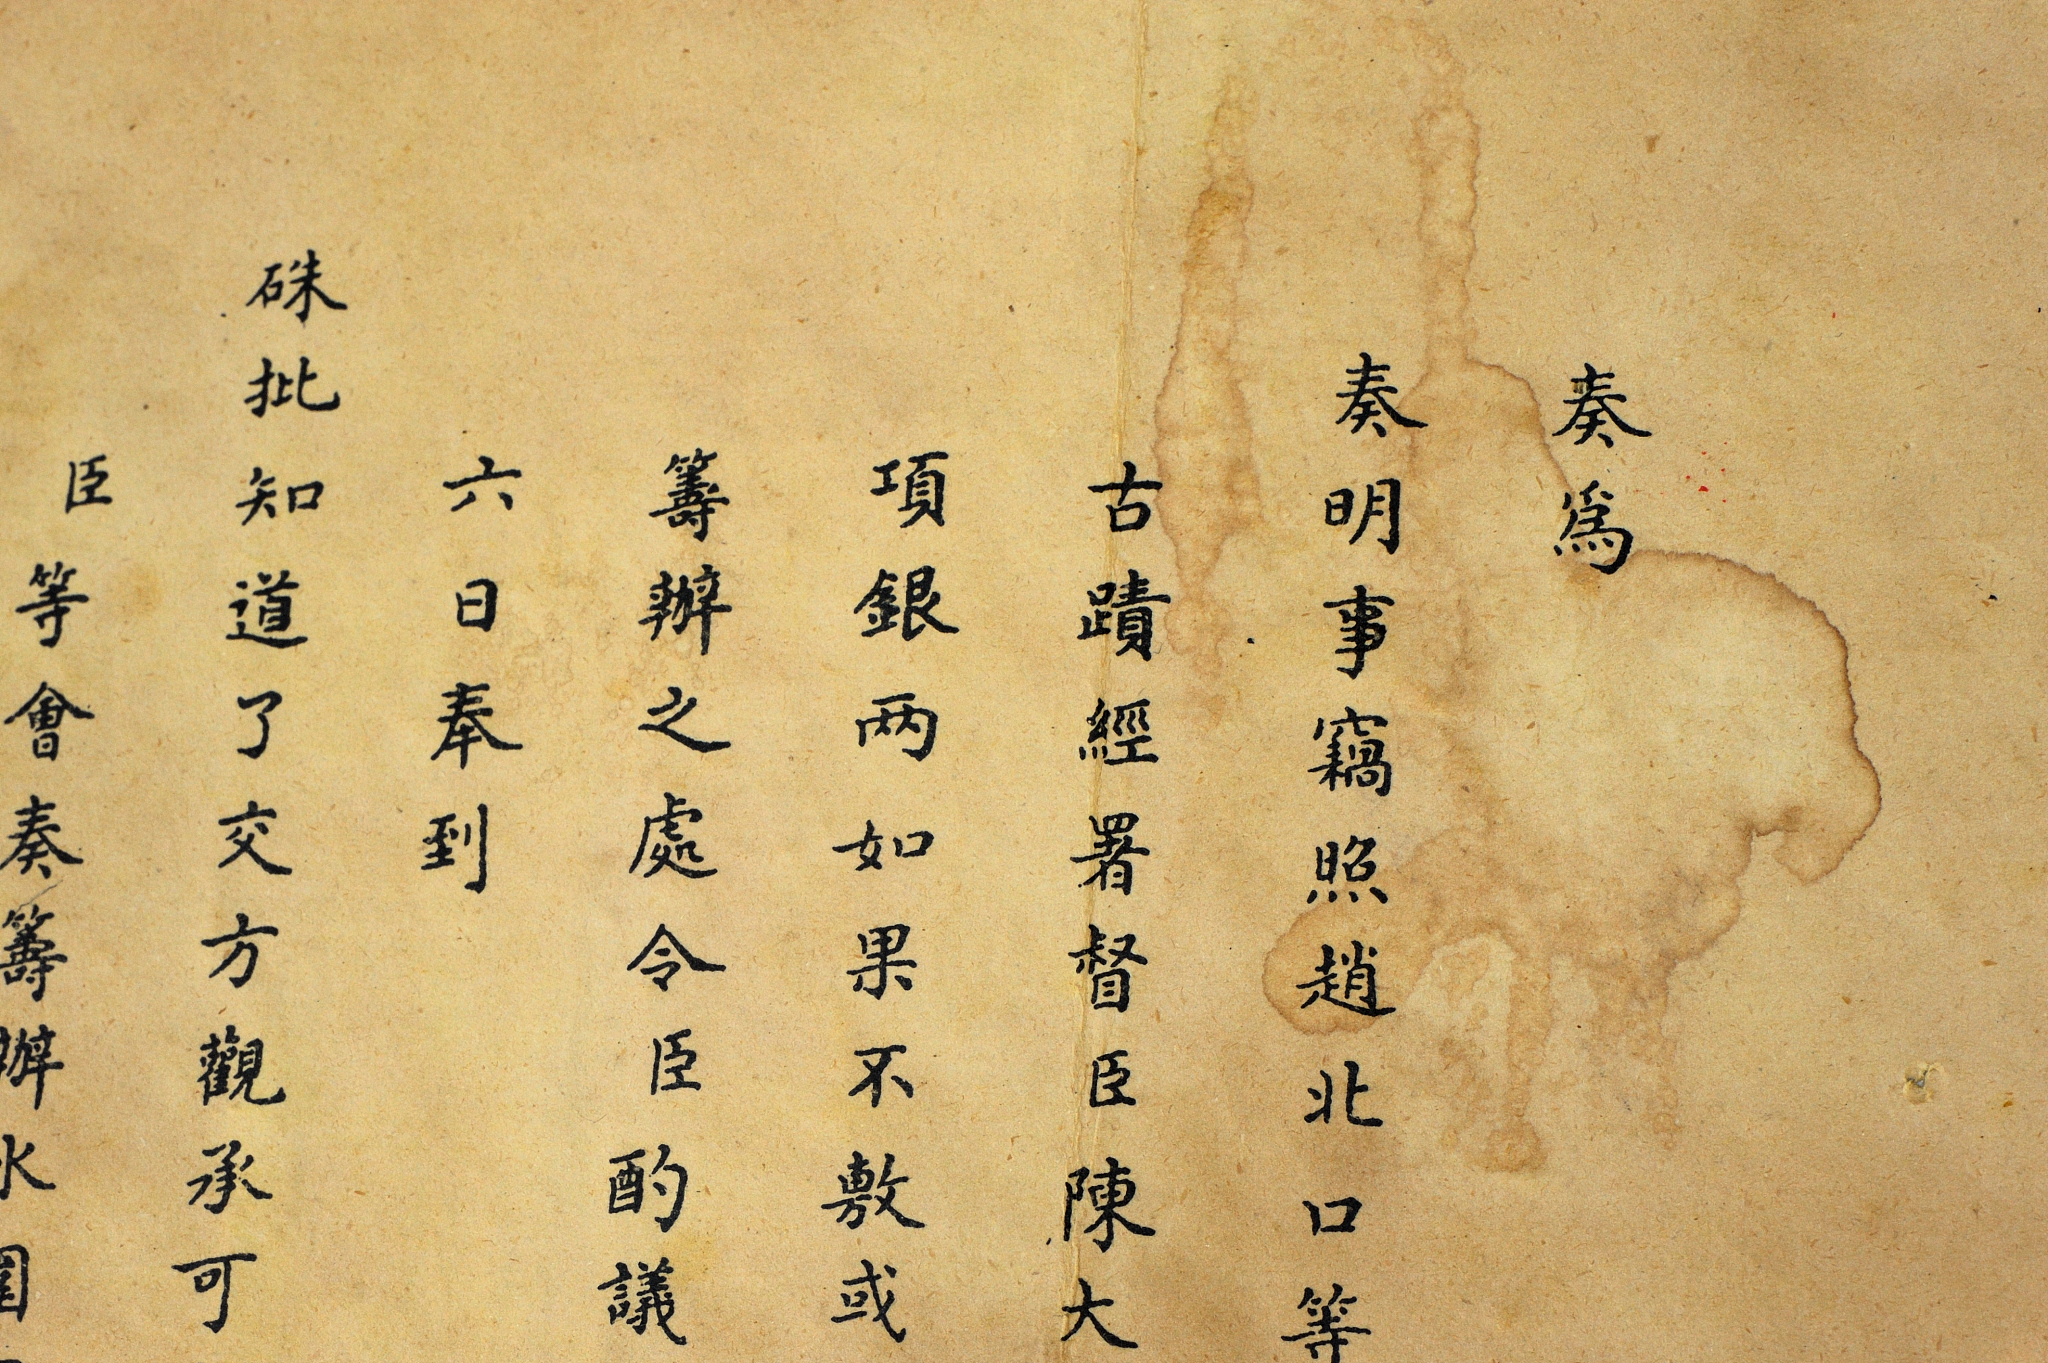 奏爲
奏明事竊照趙北口等
古蹟經署督臣陳大
項銀两如果不敷或
籌辦之處令臣酌議
六日奉到
硃批知道了交方觀承可
臣等會奏籌辦水圍